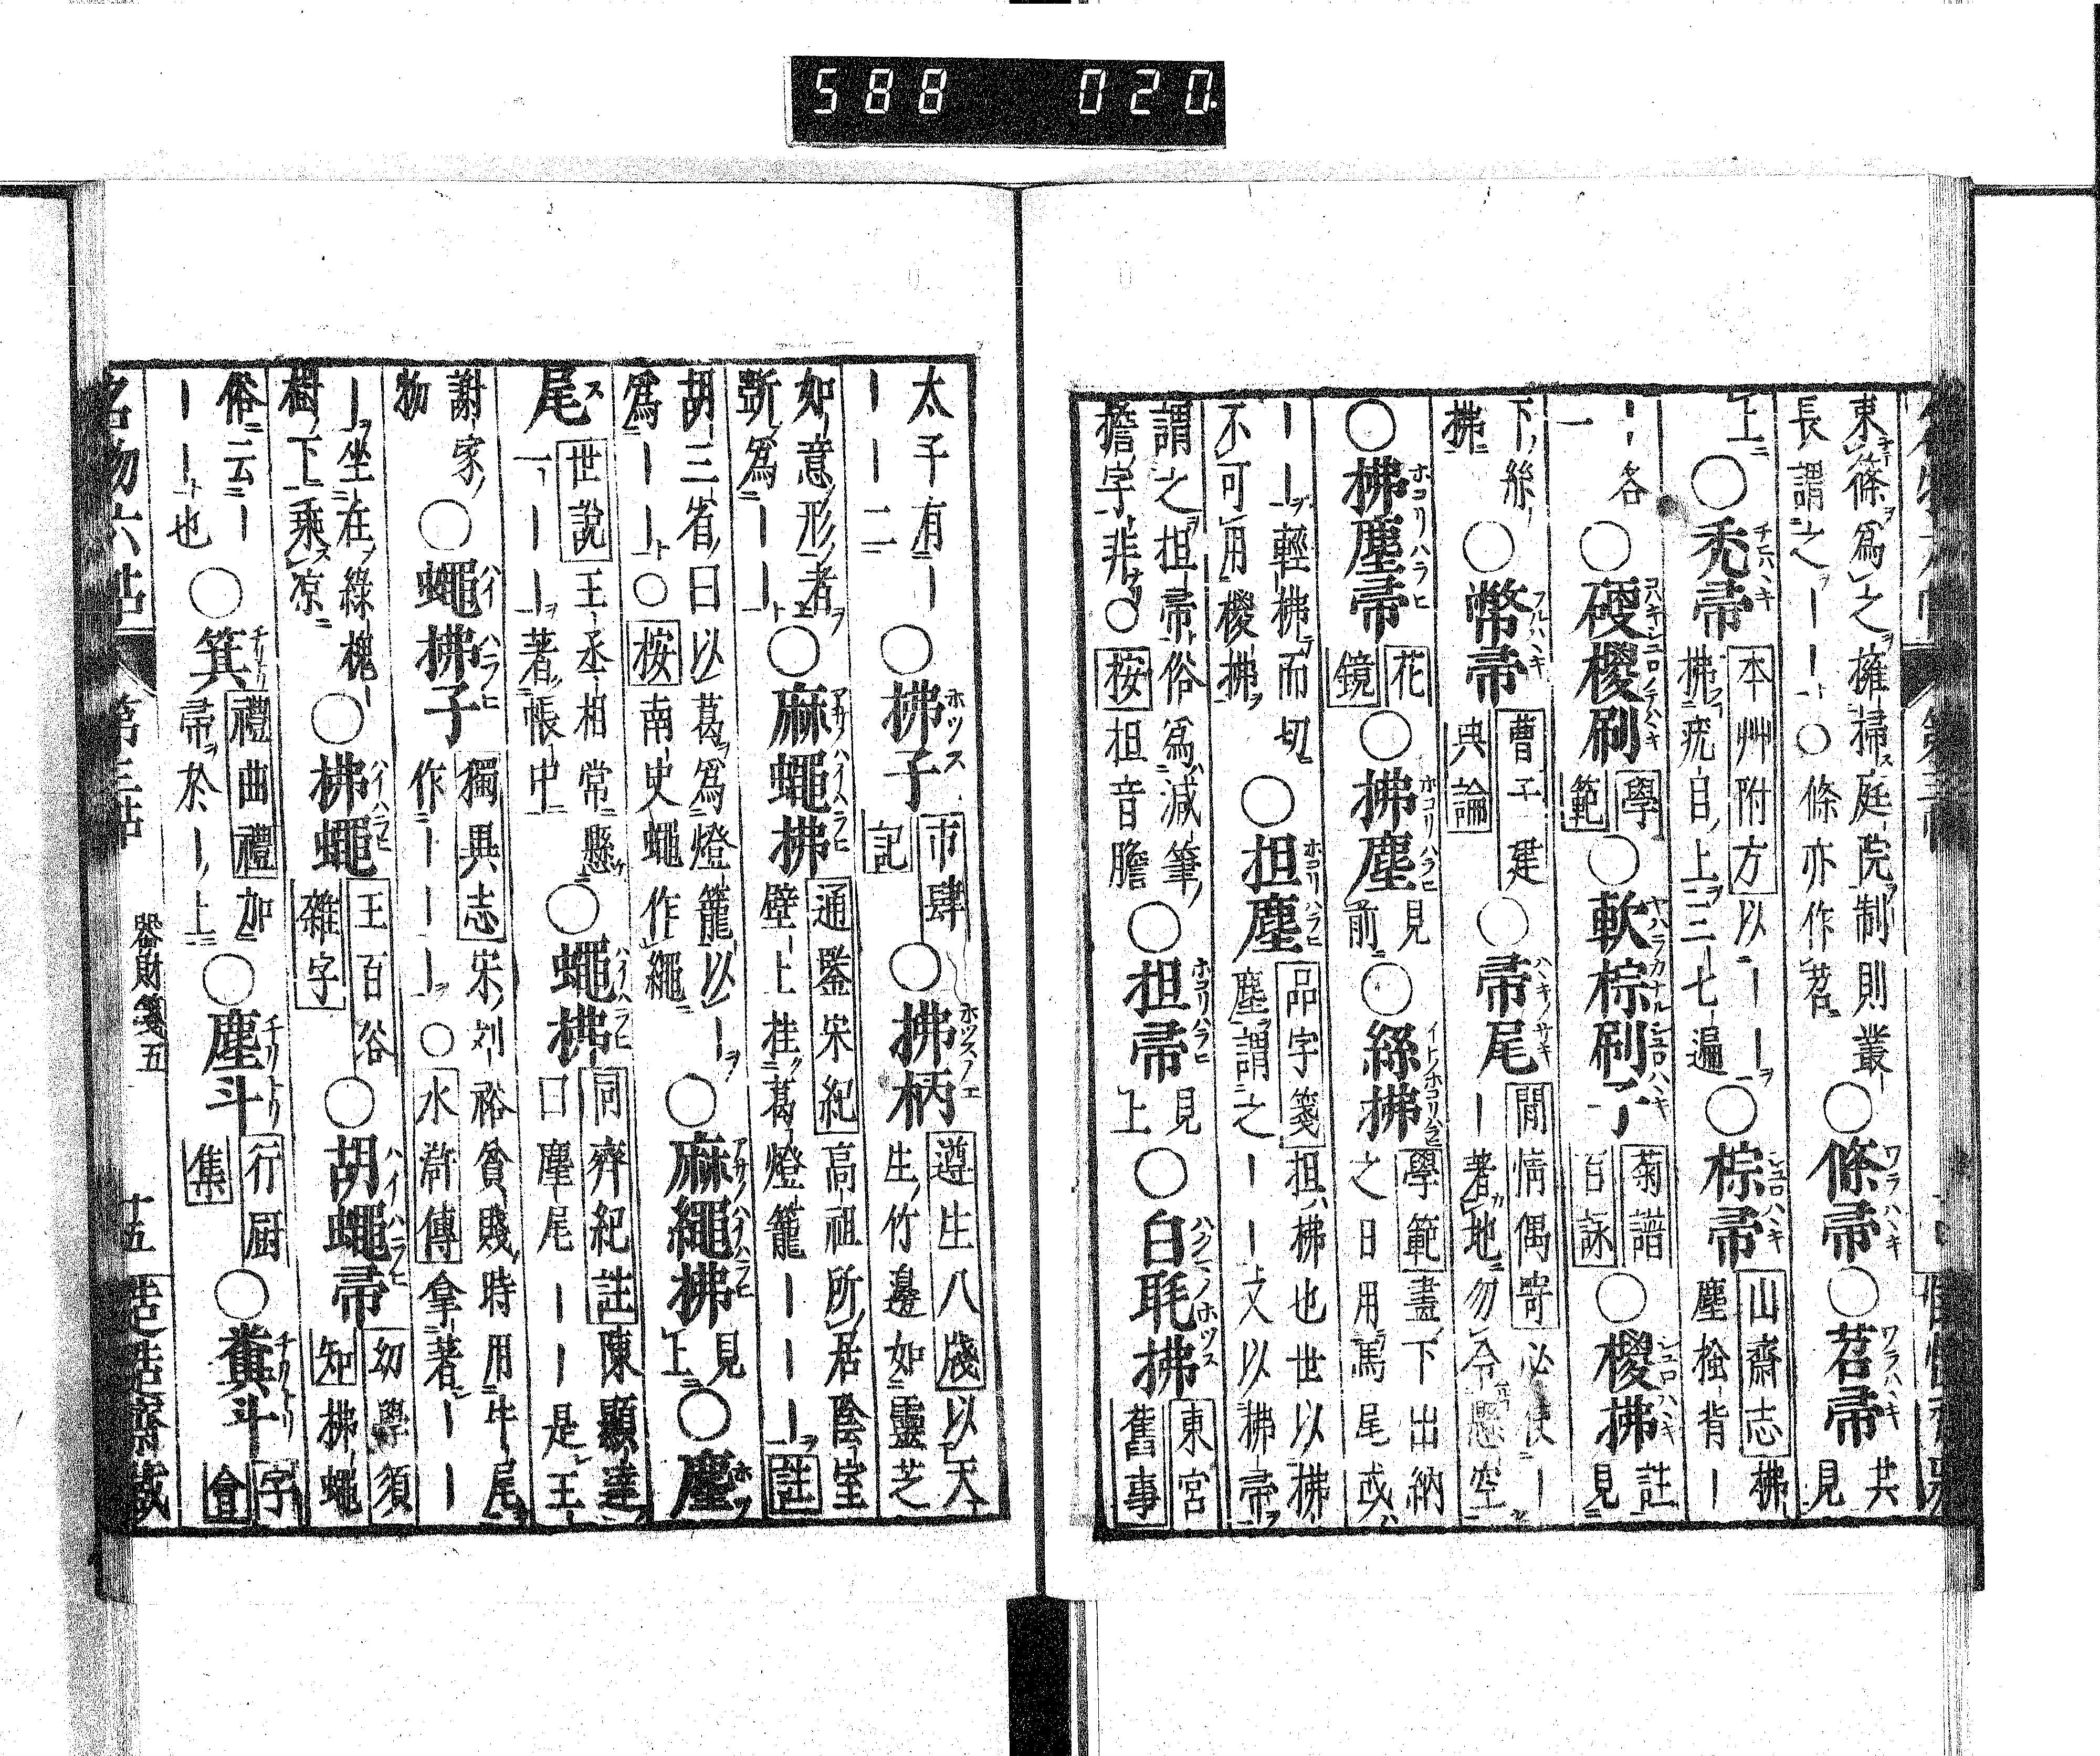 588 020
束篠爲之擁掃庭院制則叢
長謂之ーー○條亦作苕
○條帚
○苕帚 共見
上
○禿帚 本艸附方 以ーー拂疣目上三七遍
○椶帚 山齋志 拂塵
ー各一
○硬椶刷 學範
○軟棕刷子 菊譜百詠
○椶拂 註見
下絲拂
○幣帚 曹子建典論
○帚尾 閒情偶寄 必使ー著地勿令懸空
○拂塵帚 花鏡
○拂塵 見前
○絲拂 學範 畫下出納之日用馬尾或
ーー輕拂而切
不可用椶拂
○担塵 品字箋 担拂也世以拂塵謂之ーー又以拂帚
謂之担帚俗爲減筆
擔字非○按担音膽
○担帚 見上
○白毦拂 東宮舊事
太子有ーーー二
○拂子 市肆記
○拂柄 遵生八牋 以天生竹邊如靈芝
如意形者
斲爲ーー
○麻蠅拂 通鑒宋紀 高祖所居陰室壁上挂葛燈籠ーーー 註
胡三省曰以葛爲燈籠以ー
爲ーー○按南史蠅作繩
○麻繩拂 見上
○麈
尾 世說 王丞相常懸一ーー著帳中
○蠅拂 同 齊紀註 陳顯達曰麈尾ーー是王
謝家物
○蠅拂子 獨異志 宋劉裕貧賤時用牛尾作ーーー○水滸傳 拿著ーー
ー坐在綠槐
樹下乘凉
○拂蠅 王百谷雜字
○胡蠅帚 幼學須知 拂蠅
俗云ーーー也
○箕 禮曲禮 加帚於ー上
○塵斗 行厨集
○糞斗 字會
名物六帖 第三帖 器財箋五 十五